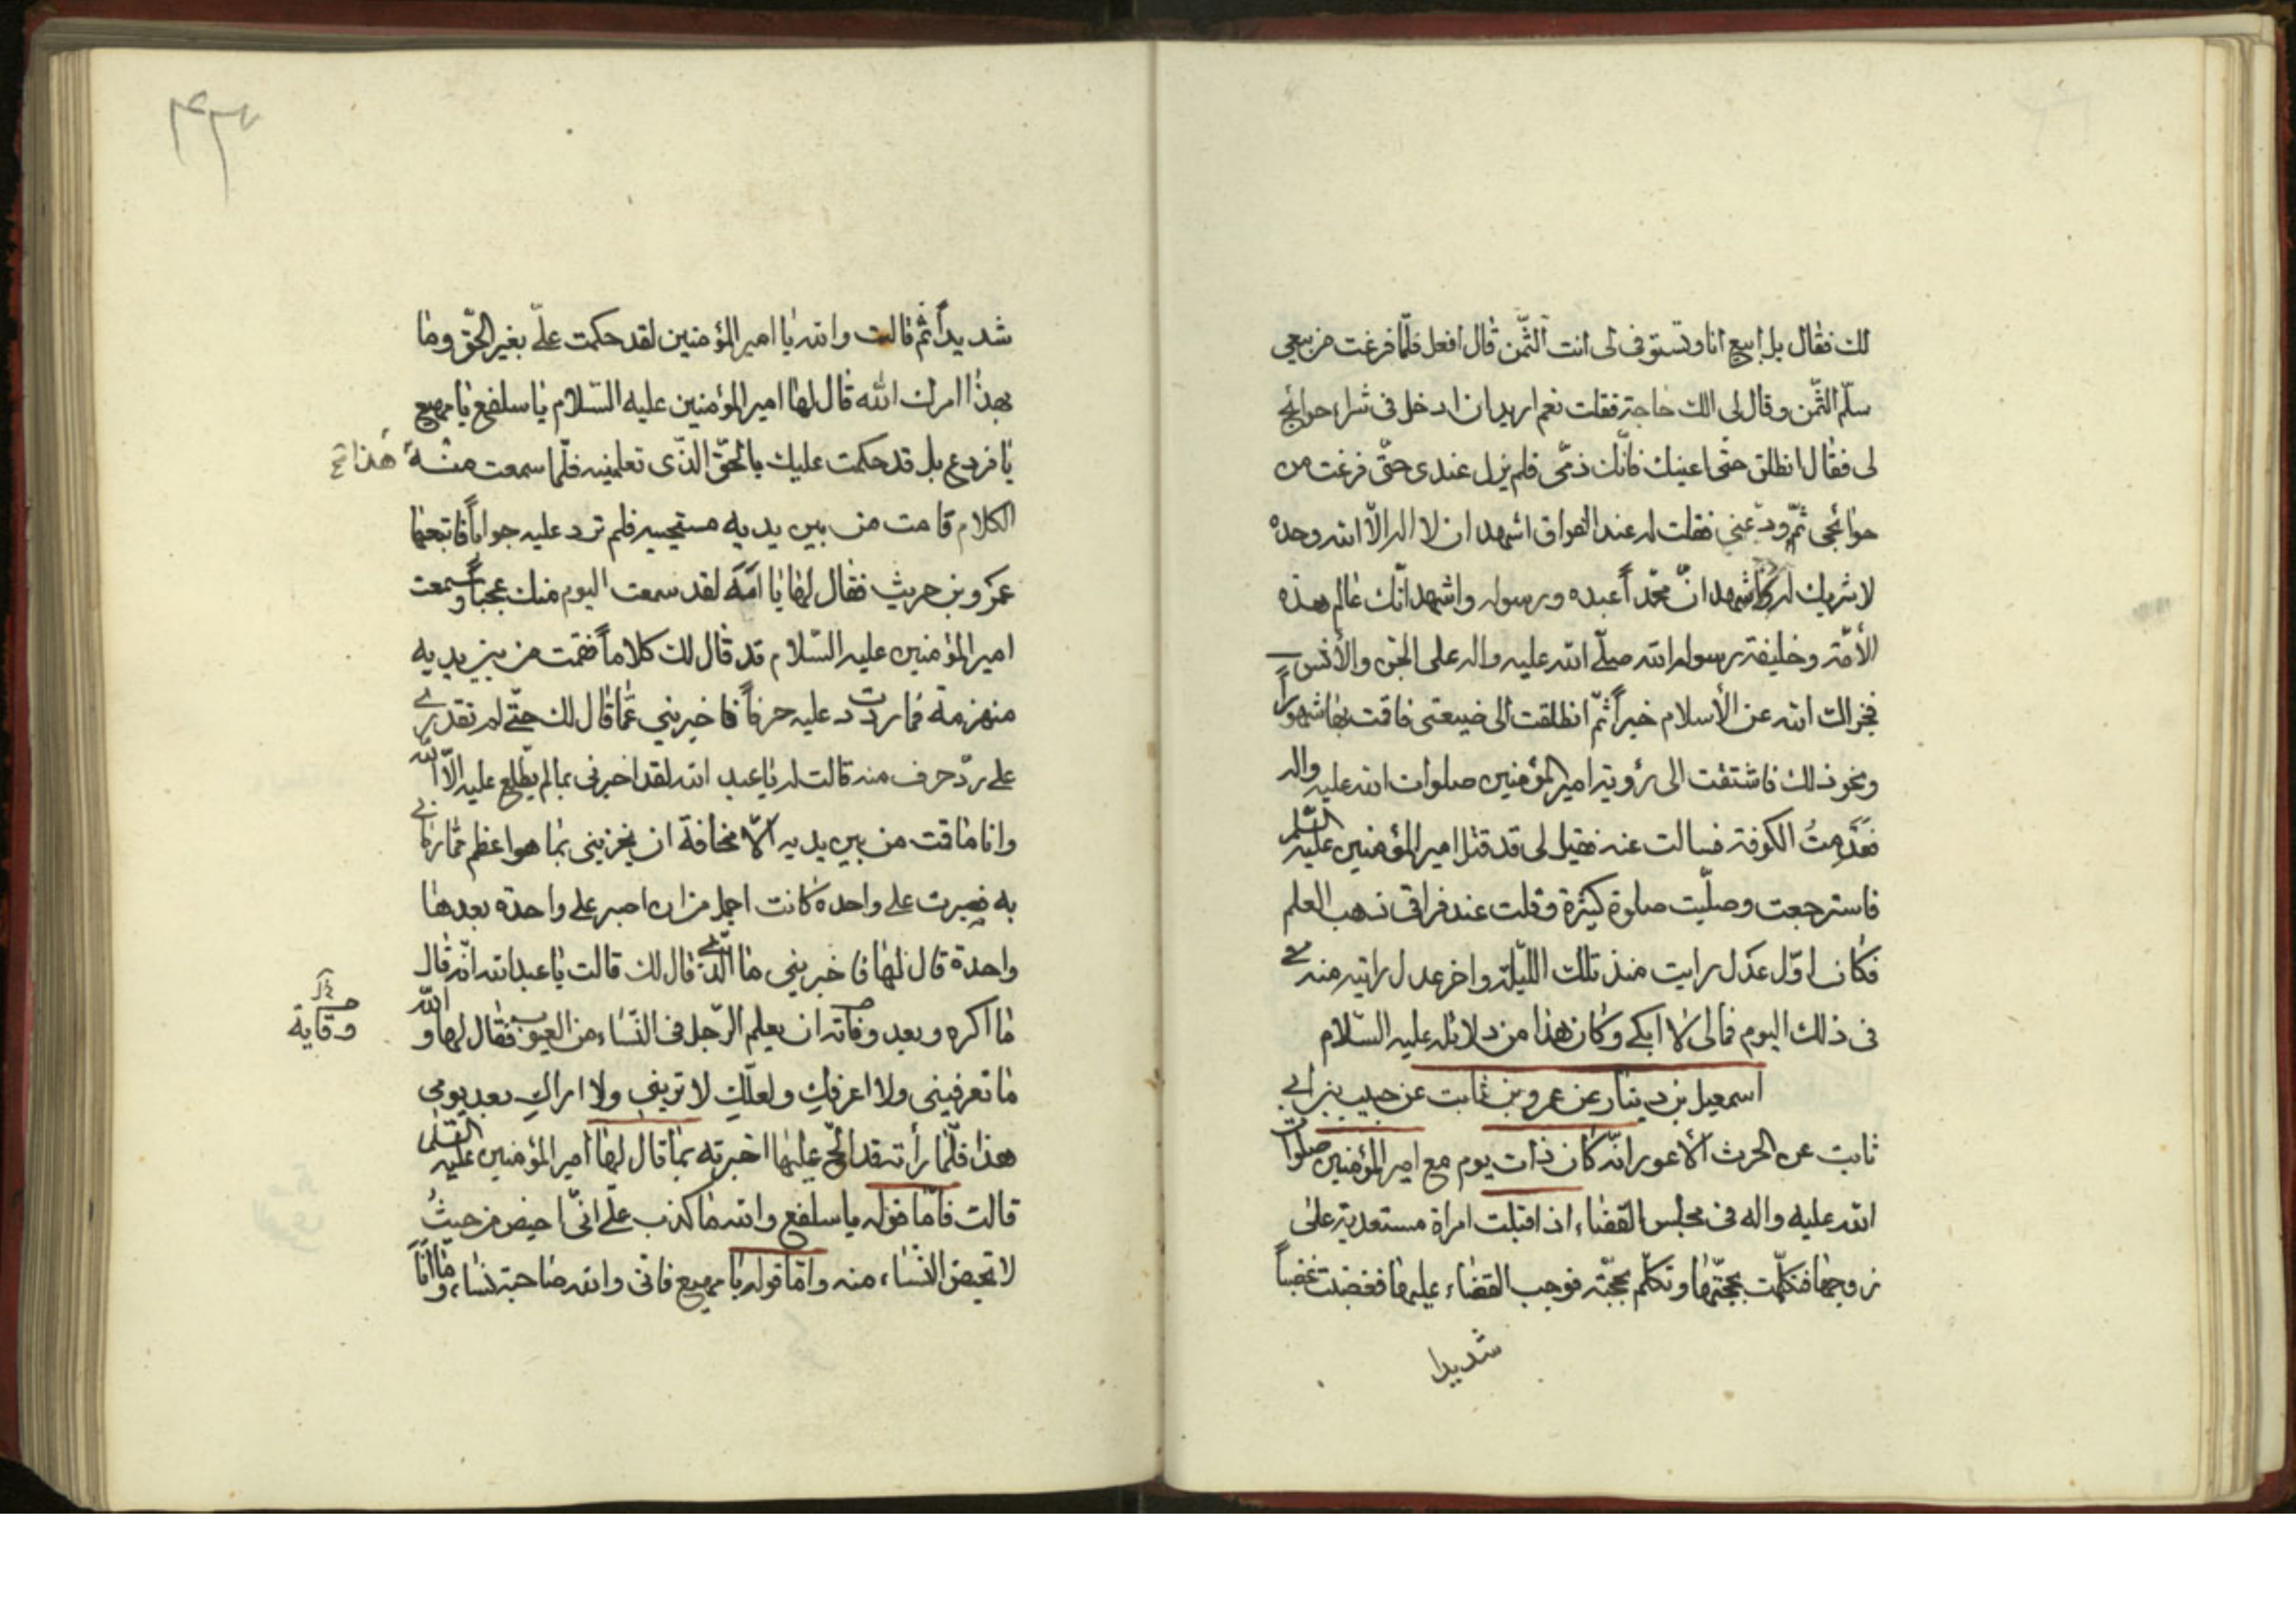 لك فقال بل ابيع انا وتستوفى لى انت الثّمن قال افعل فلمّا فرغت من بيعى
سلّم الثّمن وقال لى الك حاجة فقلت نعم اريد ان ادخل فى شراء حوائج
لى فقال انطلق حتّى اعينك فانّك ذمّى فلم يزل عندى حتّى فرغت من
حوائجى ثمّ ودّعنى فقلت له عند الفراق اشهد ان لا اله الّا الله وحده
لا شريك له واشهد انّ محمّداً عبده ورسوله واشهد انّك عالم هذه
الأمّة وخليفة رسول الله صلّى الله عليه واله على الجنّ والأنس
فجزاك الله عن الأسلام خيراً ثمّ انطلقت الى ضيعتى فاقمت بها شهوراً
ونحو ذلك فاشتقت الى رؤية امير المؤمنين صلوات الله عليه واله
فقدمتُ الكوفة فسالت عنه فقيل لى قد قتل امير المؤمنين عليه السّلم
فاسترجعت وصلّيت صلوة كثيرة وقلت عند فراقى ذهب العلم
فكان اوّل عدل رايت منذ تلك اللّيلة واخر عدل رايته منه
فى ذلك اليوم فمالى لا ابكى وكان هذا من دلائله عليه السّلام
اسمعيل بن دينار عن عمرو بن ثابت عن حبيب بن ابى
ثابت عن الحرث الأعور انّه كان ذات يوم مع امير المؤمنين صلوات
الله عليه واله فى مجلس القضاء اذ اقبلت امراة مستعدية على
زوجها فتكلّمت بحجّتها وتكلّم بحجّته فوجب القضاء عليها فغضبت غضباً
شديدا
٢٣٧
شديداً ثم قالت والله يا امير المؤمنين لقد حكمت علىّ بغير الحقّ وما
بهذا امرك الله قال لها امير المؤمنين عليه السّلام يا سلفع يا مهيع
يا فردع بل قد حكمت عليك بالحقّ الذّى تعلمنيه فلمّا سمعت منه هذا
الكلام قامت من بين يديه مستحييه فلم ترد عليه جواباً فاتبعها
عمرو بن حريث فقال لها يا امة لقد سمعت اليوم منك عجباً وسمعت
امير المؤمنين عليه السّلام قد قال لك كلاماً فقمت من بين يديه
منهزمة فما رددت عليه حرفاً فاخبرينى عمّا قال لك حتّى لم تقدرى
على ردّ حرف منه قالت له يا عبد الله لقد اخبرنى بما لم يطّلع عليه الّا الله
وانا ما قمت من بين يديه الّا مخافة ان يخزينى بما هو اعظم ممّا رمانى
به فصبرت على واحدة كانت اجمل من ان اصبر على واحدة بعدها
واحدة قال لها فاخبرينى ما الّذى قال لك قالت يا عبد الله انّه قال
ما اكره وبعد وفاته ان يعلم الرّجل فى النّساء من العيوب فقال لها والله
وقاية
ما تعرفينى ولا اعرفكِ ولعلّكِ لا ترينى ولا اراكِ بعد يومى
هذا فلّما رأته قد الحّ عليها اخبرته بما قال لها امير المؤمنين عليه السّلم
قالت فامّا قوله يا سلفع والله ما كذب علىّ انّى احيض من حيثُ
لا تحيض النّساء منه وامّا قوله يا مهيع فانى والله صاحبة نساء وما انا